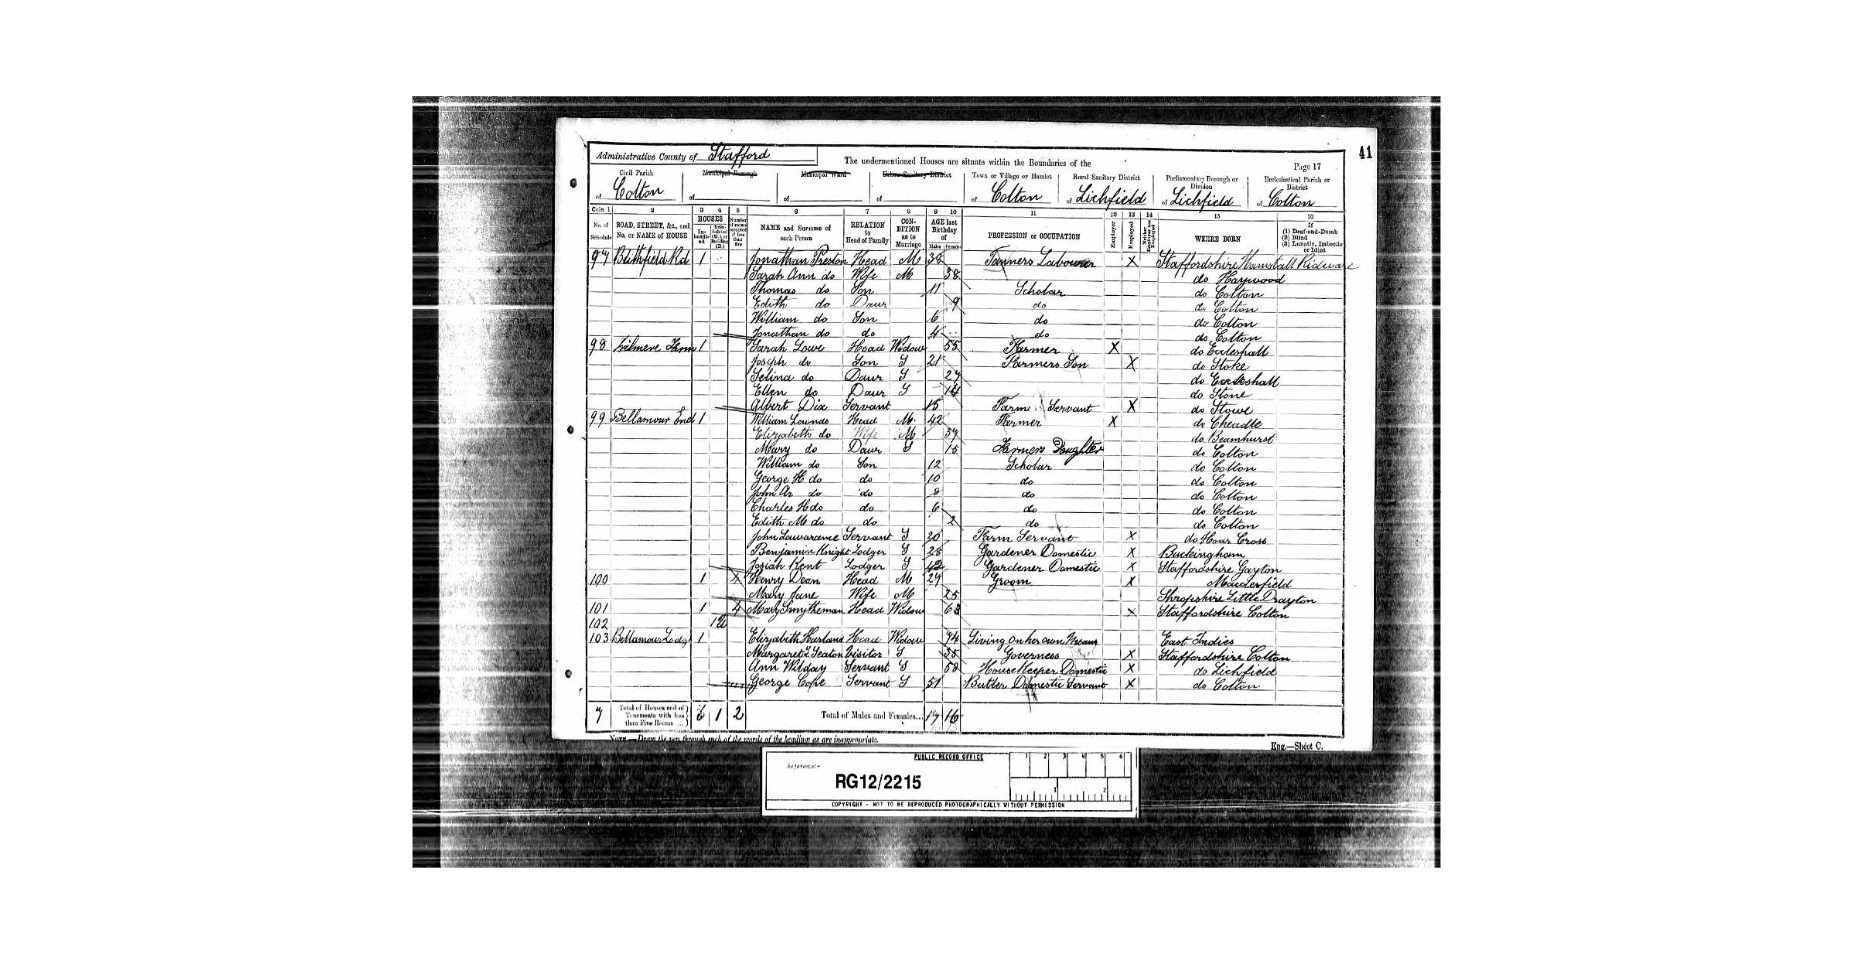 41
Administrative County of Stafford
The undermentioned Houses are situate within the Boundaries of the
Page 17
Civil Parish of Colton
Municipal Borough of
Municipal Ward of
Urban Sanitary District of
Town or Village or Hamlet of Colton
Rural Sanitary District of Lichfield
Parliamentary Borough or Division of Lichfield
Ecclesiastical Parish or District of Colton
Cols. 1 2 3 4 5 6 7 8 9 10 11 12 13 14 15 16
No. of Schedule
ROAD, STREET, &c., and No. or NAME of HOUSE
HOUSES
NAME and Surname of each Person
RELATION to Head of Family
CONDITION as to Marriage
AGE last Birthday of
Males Females
PROFESSION or OCCUPATION
Employer
Employed
Neither
WHERE BORN
If (1) Deaf-and-Dumb (2) Blind (3) Lunatic, Imbecile or Idiot
97 Blithfield Rd 1 Jonathan Preston Head M 38 Labourer X Staffordshire Hamstall Ridware
Sarah Ann do Wife M 38 do Haywood
Thomas do Son 11 Scholar do Colton
Edith do Daur 9 do do Colton
William do Son 6 do do Colton
Jonathan do do 4 do do Colton
98 Farm 1 Sarah Lowe Head Widow 55 Farmer X do Eccleshall
Joseph do Son S 21 Farmers Son X do Stoke
Selina do Daur S 27 do Eccleshall
Ellen do Daur S 14 do Stone
Albert Dix Servant 15 Farm Servant X do Stowe
99 Bellamour End 1 William Lounds Head M 42 Farmer X do Cheadle
Elizabeth do Wife M 37 do Beamhurst
Mary do Daur S 15 Farmers Daughter do Colton
William do Son 12 Scholar do Colton
George H do do 10 do do Colton
John Ar do do 8 do do Colton
Charles H do do 6 do do Colton
Edith M do do 2 do do Colton
John Lawarance Servant S 20 Farm Servant X do Hoar Cross
Benjamin Knight Lodger S 28 Gardener Domestic X Buckingham
Josiah Kent Lodger S 42 Gardener Domestic X Staffordshire Gayton
100 1 X Henry Dean Head M 29 Groom X
Mary Jane Wife M 25 Shropshire Little Drayton
101 1 4 Mary Smytheman Head Widow 68 X Staffordshire Colton
102 1
103 Bellamour Lodge 1 Elizabeth Harland Head Widow 74 Living on her own Means East Indies
Margaret Seaton Visitor S 35 Governess X Staffordshire Colton
Ann Wilday Servant S 58 HouseKeeper Domestic X do Lichfield
George Cope Servant S 51 Butler Domestic Servant X do Colton
7 Total of Houses and of Tenements with less than Five Rooms 6 1 2 Total of Males and Females... 17 16
NOTE.—Draw the pen through such of the words of the headings as are inappropriate.
Eng.—Sheet C.
PUBLIC RECORD OFFICE
Reference:-
1 2 3 4 5 6
RG12/2215
1 2
COPYRIGHT - NOT TO BE REPRODUCED PHOTOGRAPHICALLY WITHOUT PERMISSION